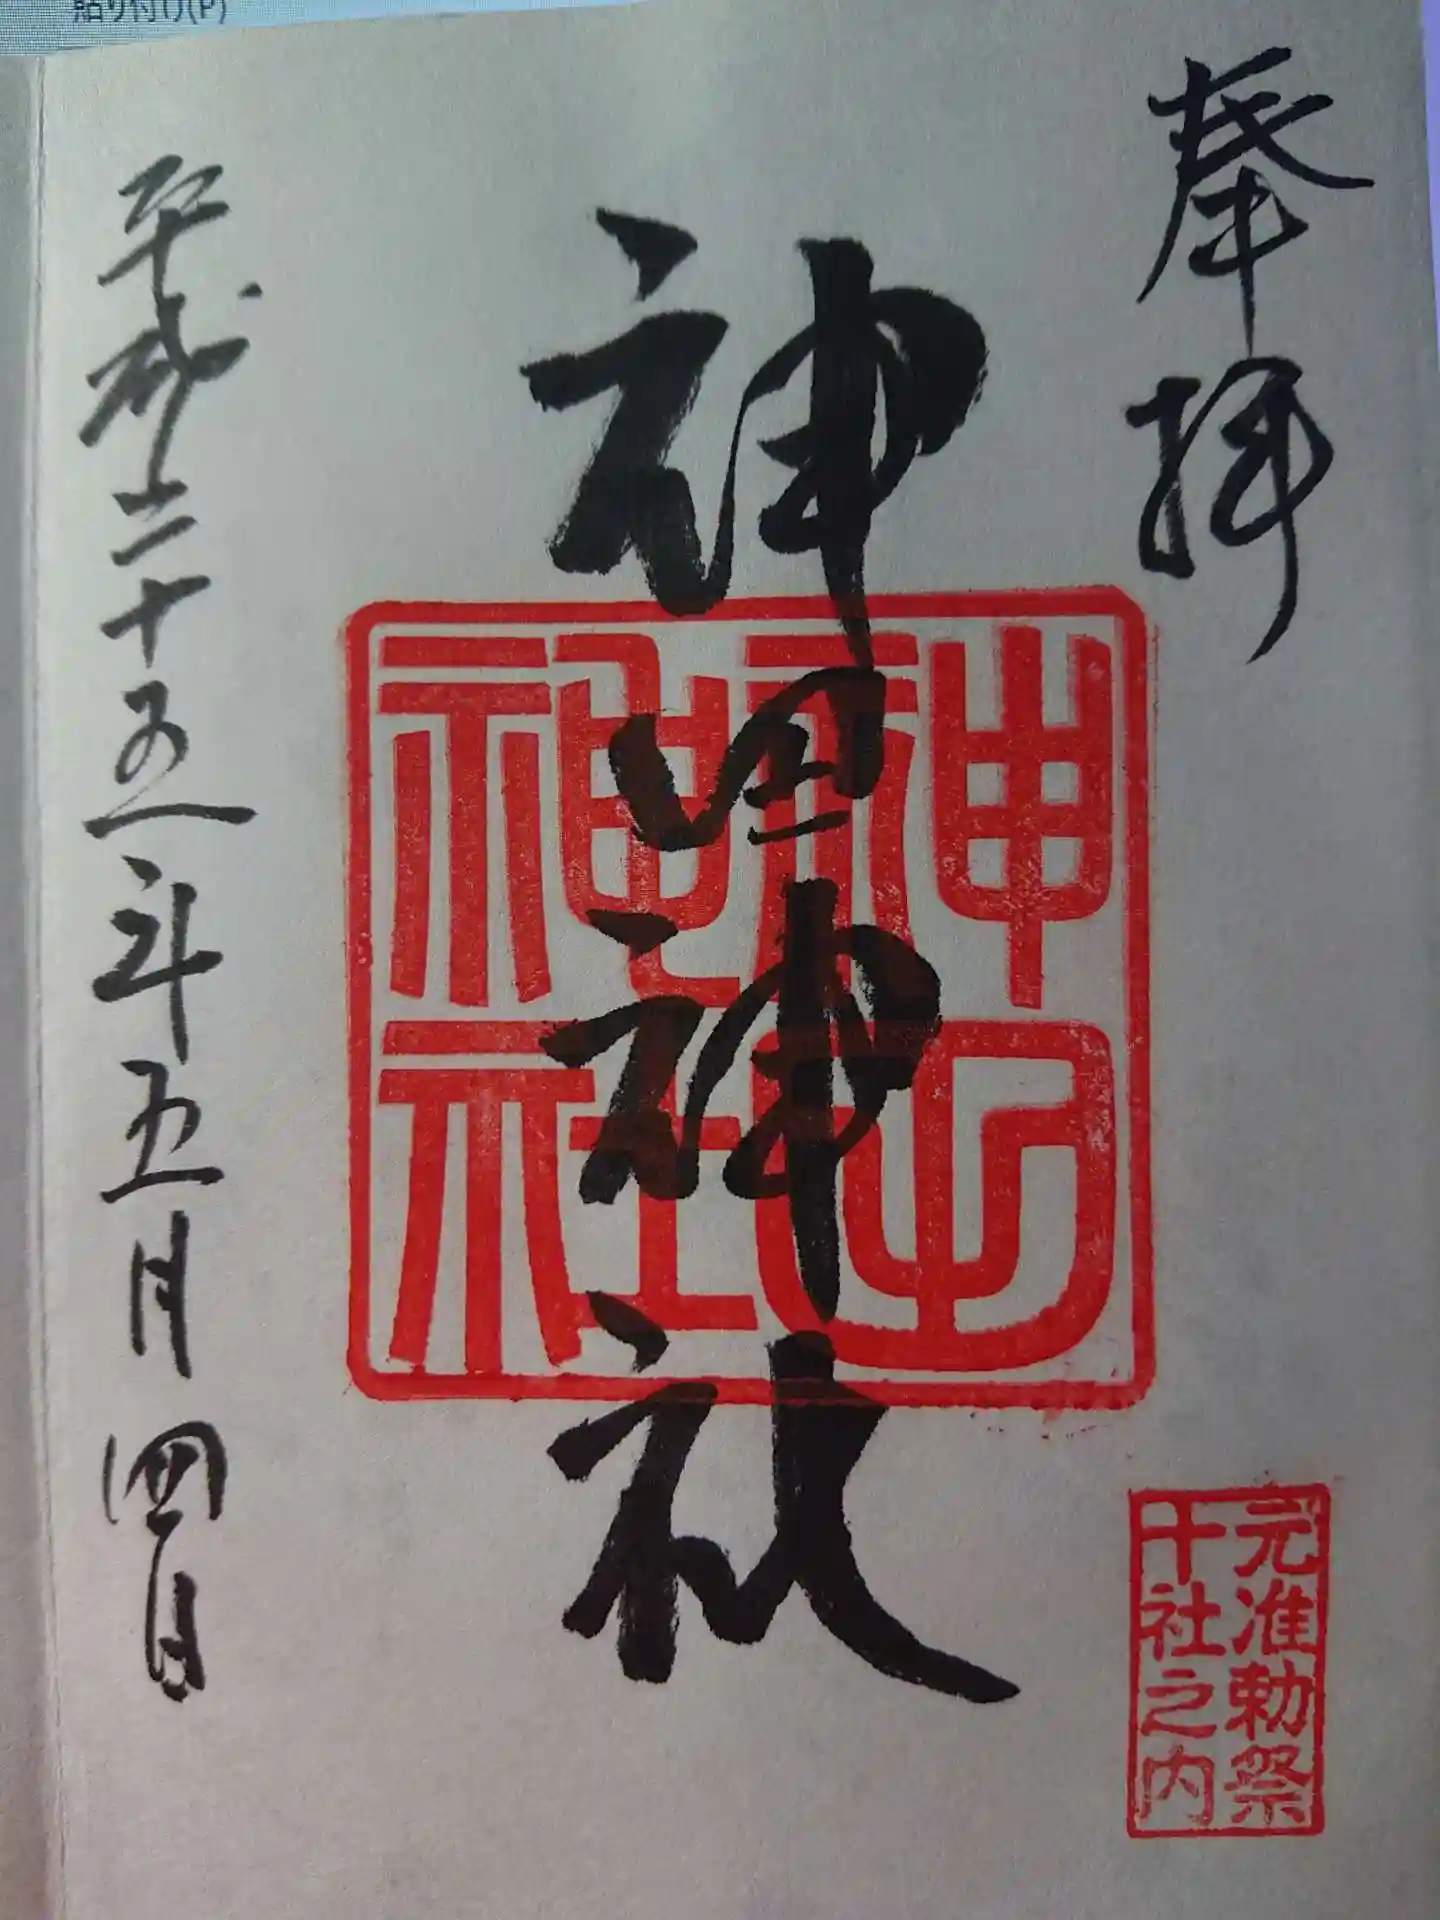 貼り付け(P)
奉拝
元准勅祭
十社之内
神田神社
神田
神社
平成二十五年五月四日